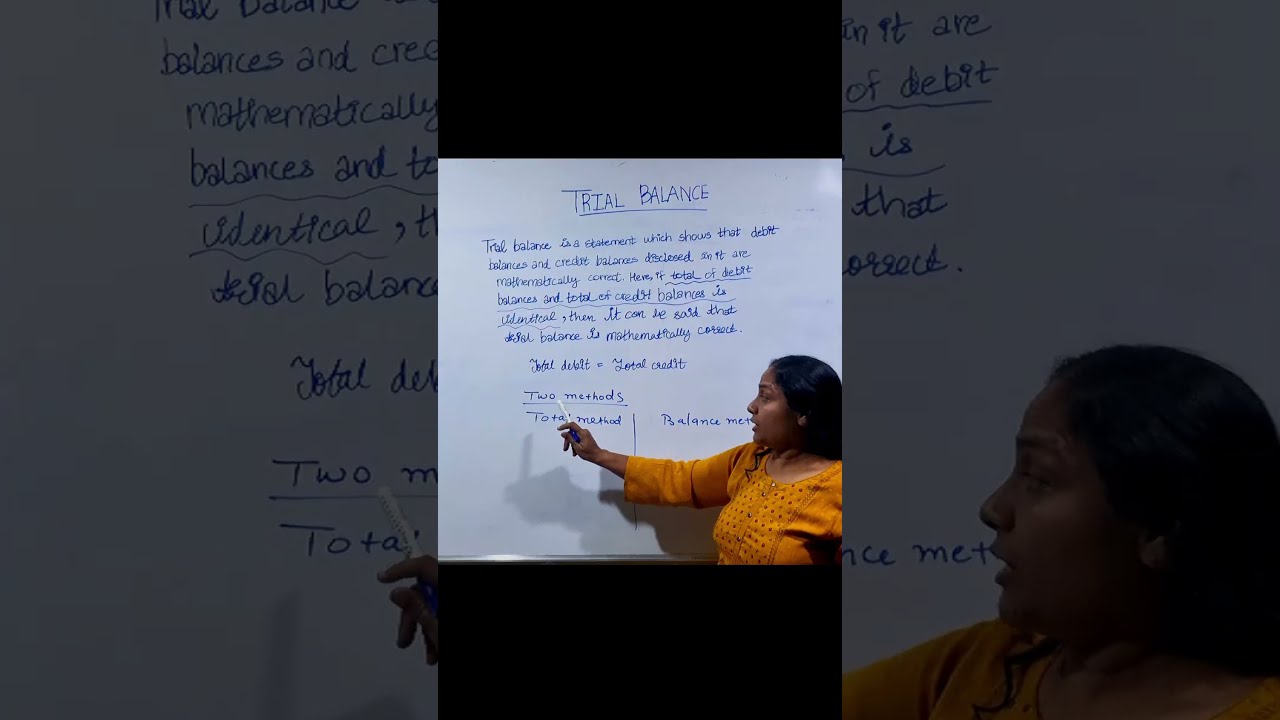 TRIAL BALANCE
Trial balance is a statement which shows that debit
balances and credit balances disclosed in it are
mathematically correct. Here, if total of debit
balances and total of credit balances is
identical, then it can be said that
trial balance is mathematically correct.
Total debit = Total credit
Two methods
Total method
Balance met